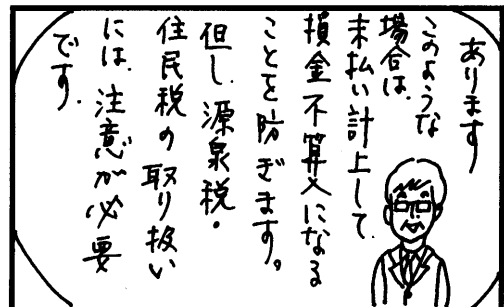 あります
このような
場合は、
未払い計上して、
損金不算入になる
ことを防ぎます。
但し、源泉税・
住民税の取り扱い
には、注意が必要
です。